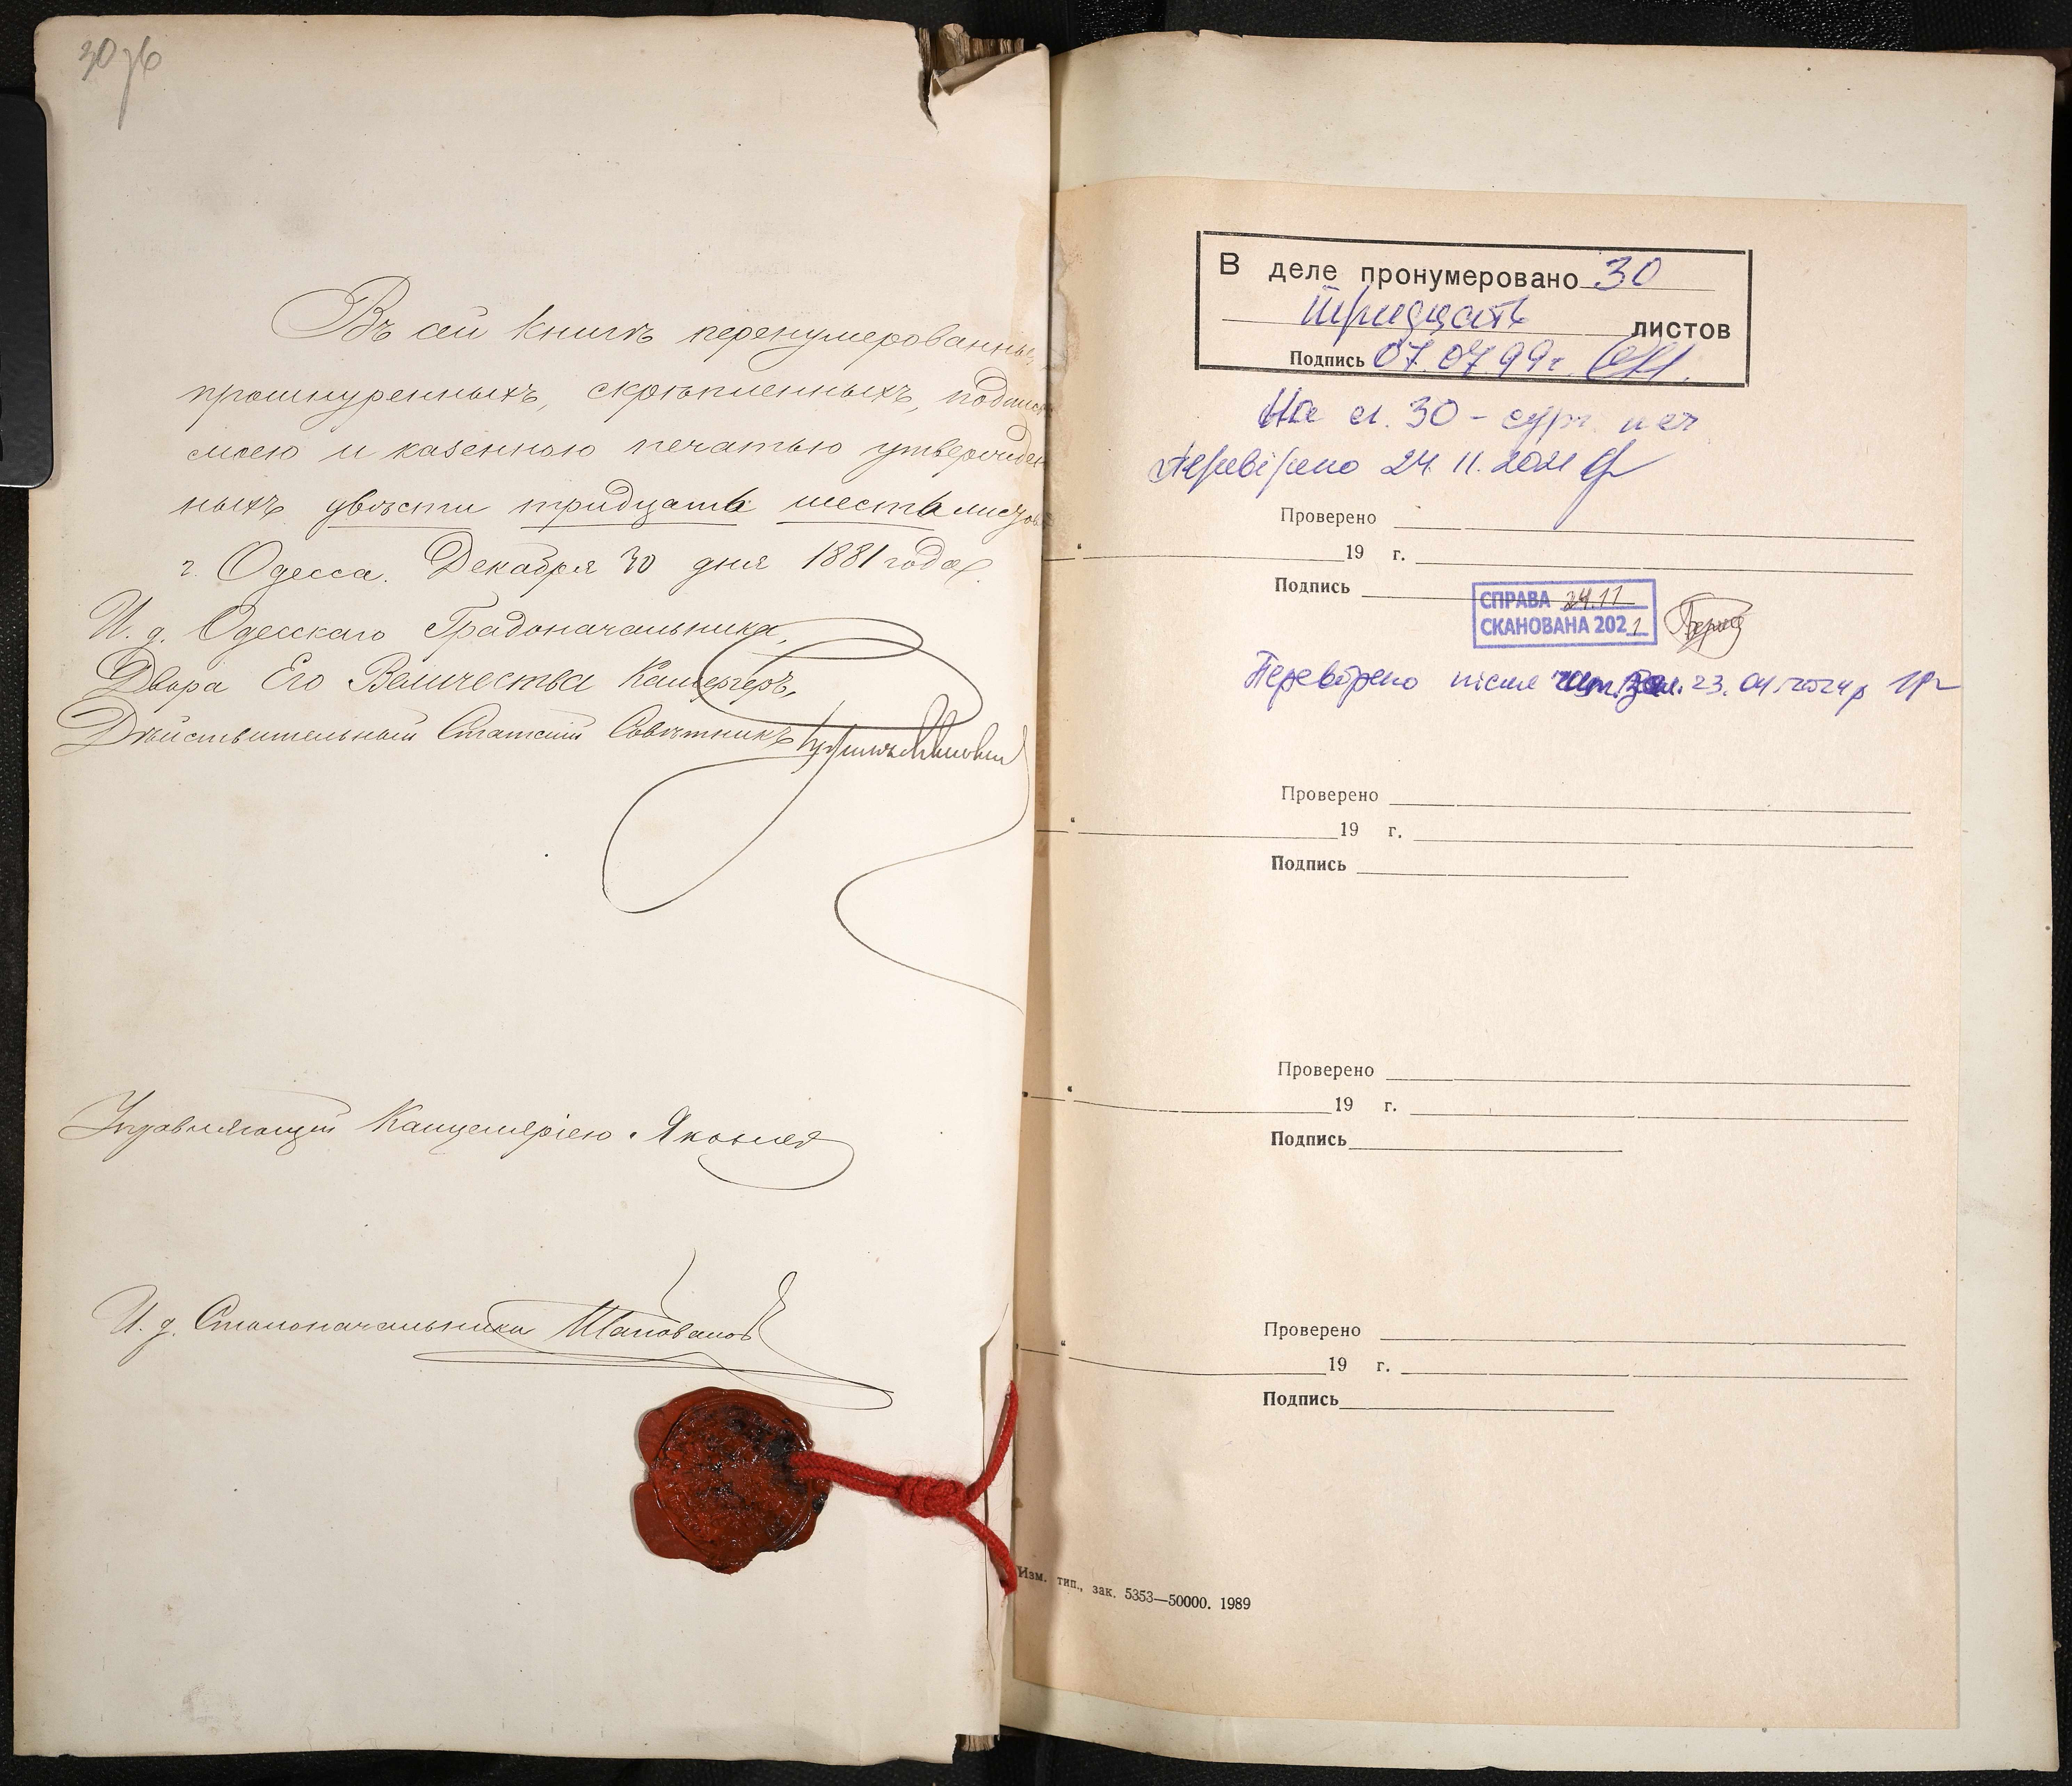 30 об
Въ сей книгѣ перенумерованных,
прошнуренныхъ, скрѣпленныхъ, подписью
моею и казенною печатью утвержден
ныхъ двѣсти тридцать шесть листов
г. Одесса. Декабря 30 дня 1881 года.
И. д. Одесскаго Градоначальника,
Двора Его Величества Камергеръ,
Дѣйствительный Статскій Совѣтникъ
Управляющій Канцеляріею Яковлев
И. д. Столоначальника Шаповалов
В деле пронумеровано 30
тридцать листов
Подпись 07.07.99 г.
На л. 30 - сург. печ
Перевірено 24.11.2021
Проверено
19 г.
Подпись
СПРАВА 24.11
СКАНОВАНА 2021
Перевірено після 23.04.2024р
Проверено
19 г.
Подпись
Проверено
19 г.
Подпись
Проверено
19 г.
Подпись
Изм. тип., зак. 5353—50000. 1989